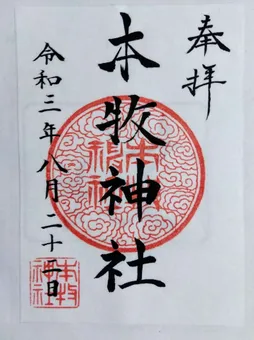 奉拝
本牧神社
令和三年八月二十二日
本牧神社